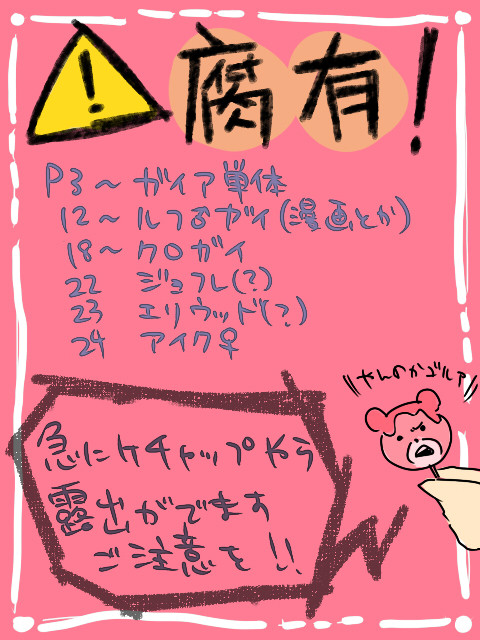 ⚠腐有!
P3～ガイア単体
12～ルフ♂ガイ(漫画とか)
18～クロガイ
22 ジョフレ(?)
23 エリウッド(?)
24 アイク♀
\\やんのかゴルァ//
急にケチャップやら
露出がでます
ご注意を!!